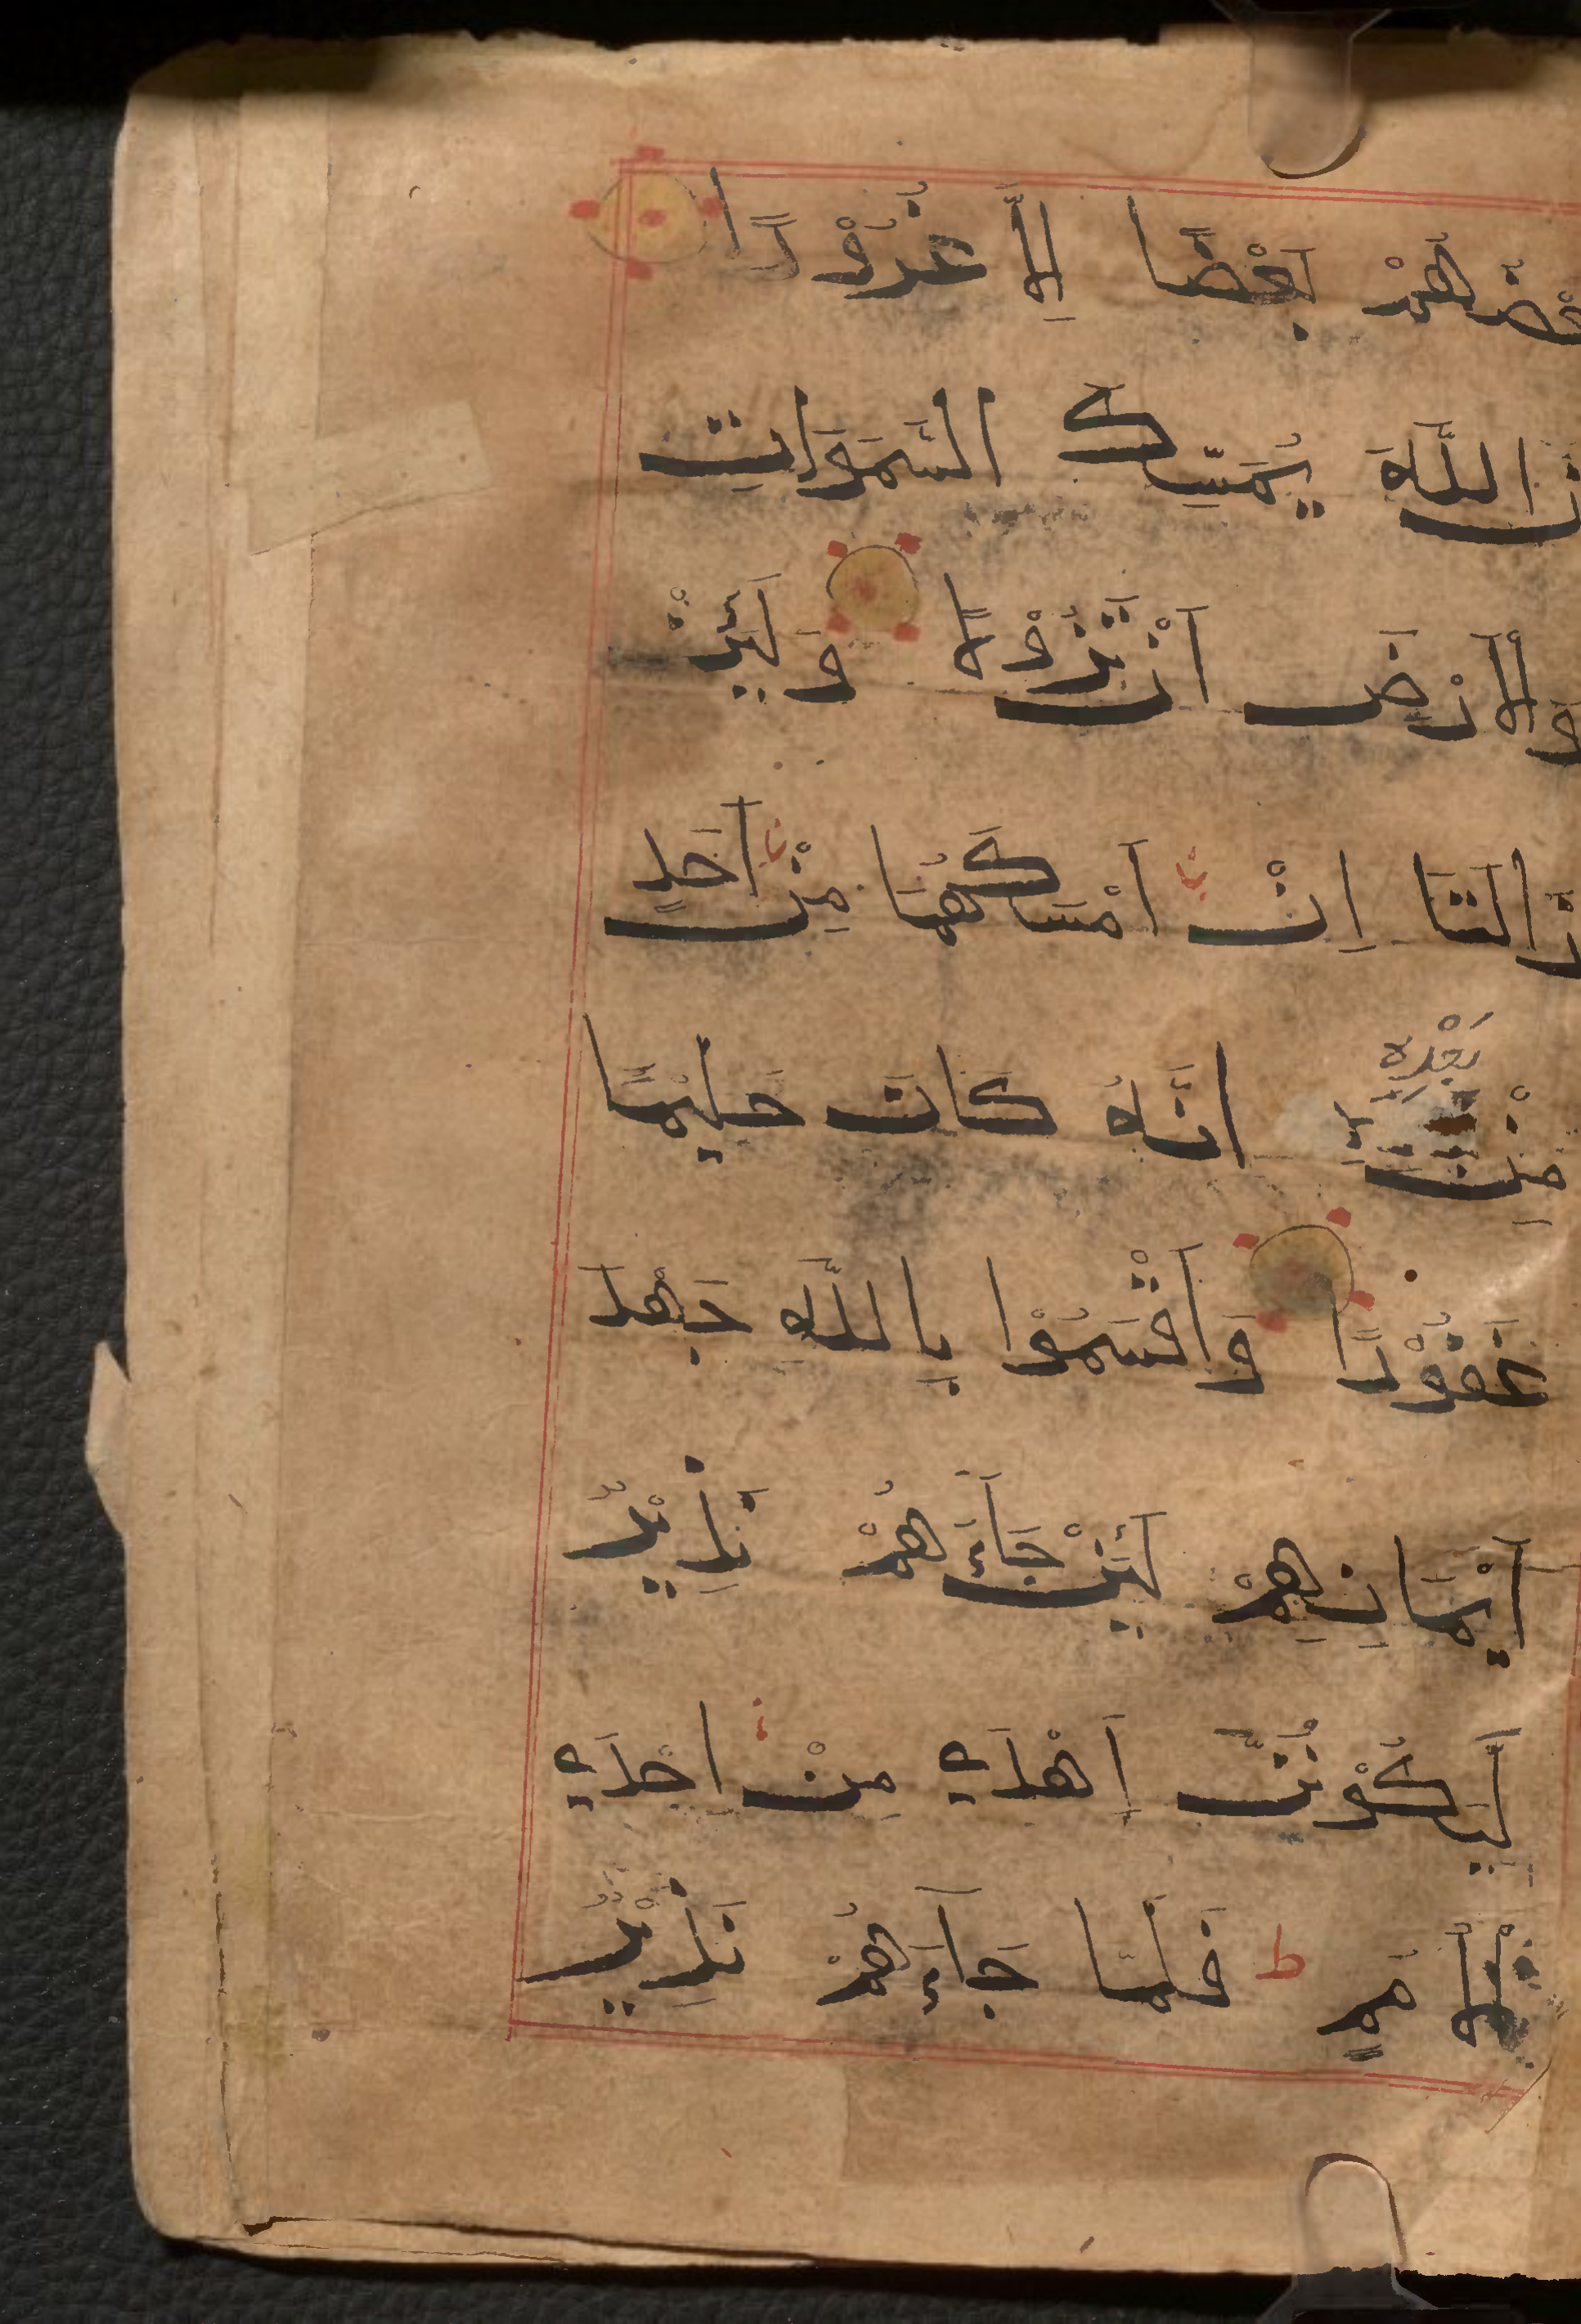 بَعْضُهُمْ بَعْضًا اِلَّا غُرُوْرًا
اِنَّ اللّٰهَ يُمْسِكُ السَّمَوَاتِ
وَالْاَرْضَ اَنْ تَزُوْلَا وَلَئِنْ
زَالَتَا اِنْ اَمْسَكَهُمَا مِنْ اَحَدٍ
مِنْ بَعْدِهٖ اِنَّهُ كَانَ حَلِيْمًا
غَفُوْرًا وَاَقْسَمُوْا بِاللّٰهِ جَهْدَ
اَيْمَانِهِمْ لَئِنْ جَآءَهُمْ نَذِيْرٌ
لَّيَكُوْنُنَّ اَهْدَي مِنْ اِحْدَي
الْاُمَمِ ط فَلَمَّا جَآءَهُمْ نَذِيْرٌ